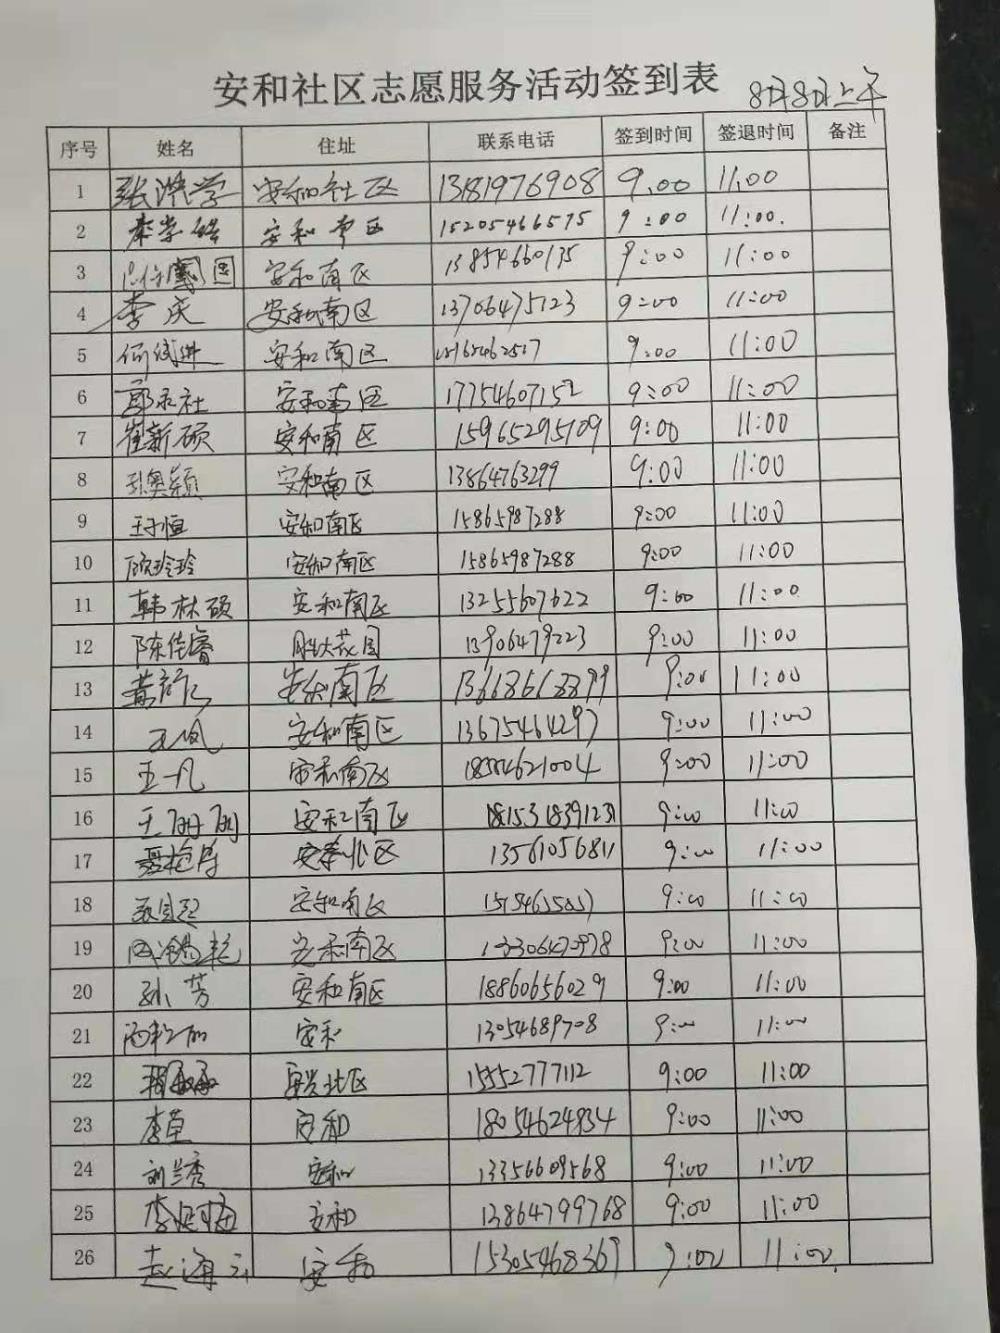 安和社区志愿服务活动签到表 8月8日上午
序号 姓名 住址 联系电话 签到时间 签退时间 备注
1 张洪学 安和社区 13181976908 9.00 11.00
2 安和南区 15205466575 9:00 11:00.
3 安和南区 13854660135 9:00 11:00
4 李庆 安和南区 13706475123 9:00 11:00
5 安和南区 9:00 11:00
6 郭永社 安和南区 17754607152 9:00 11:00
7 崔新硕 安和南区 15965295109 9:00 11:00
8 安和南区 13864763299 9:00 11:00
9 王子恒 安和南区 15865987288 9:00 11:00
10 安和南区 15865987288 9:00 11:00
11 韩林硕 安和南区 13255607622 9:00 11:00
12 陈佳睿 胜大花园 13906479223 9:00 11:00
13 安和南区 9:00 11:00
14 王凤 安和南区 13675464297 9:00 11:00
15 王一凡 安和南区 18554621004 9:00 11:00
16 王丽丽 安和南区 9:00 11:00
17 安泰北区 13561056811 9:00 11:00
18 安和南区 9:00 11:00
19 安和南区 13306470978 9:00 11:00
20 孙芳 安和南区 18860656029 9:00 11:00
21 安和 13054689708 9:00 11:00
22 安兴北区 15552777112 9:00 11:00
23 李草 安和 18054624934 9:00 11:00
24 刘兰秀 安和 13356609568 9:00 11:00
25 安和 13864799768 9:00 11:00
26 安和 15305468369 9:00 11:00.